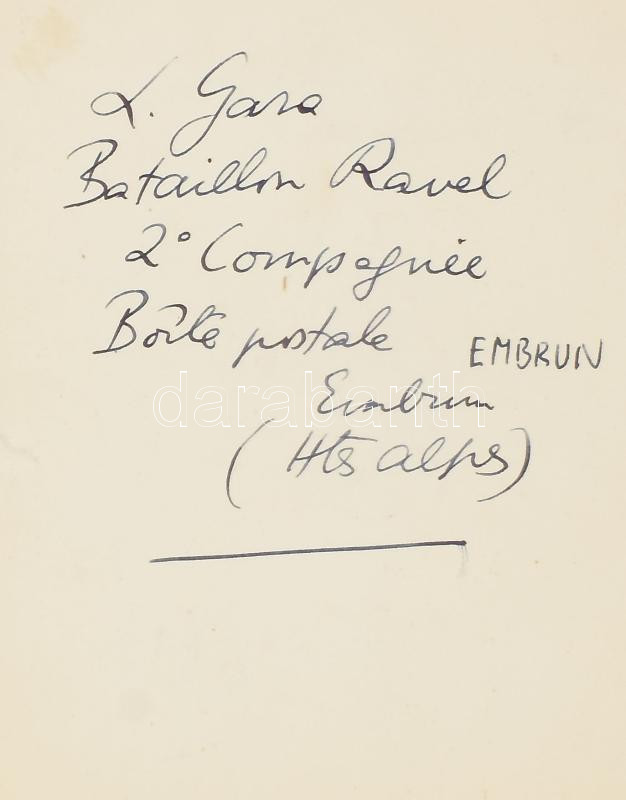 L. Gara
Bataillon Ravel
2° Compagnie
Boîte postale
EMBRUN
Embrun
(Hts alpes)
darabanth